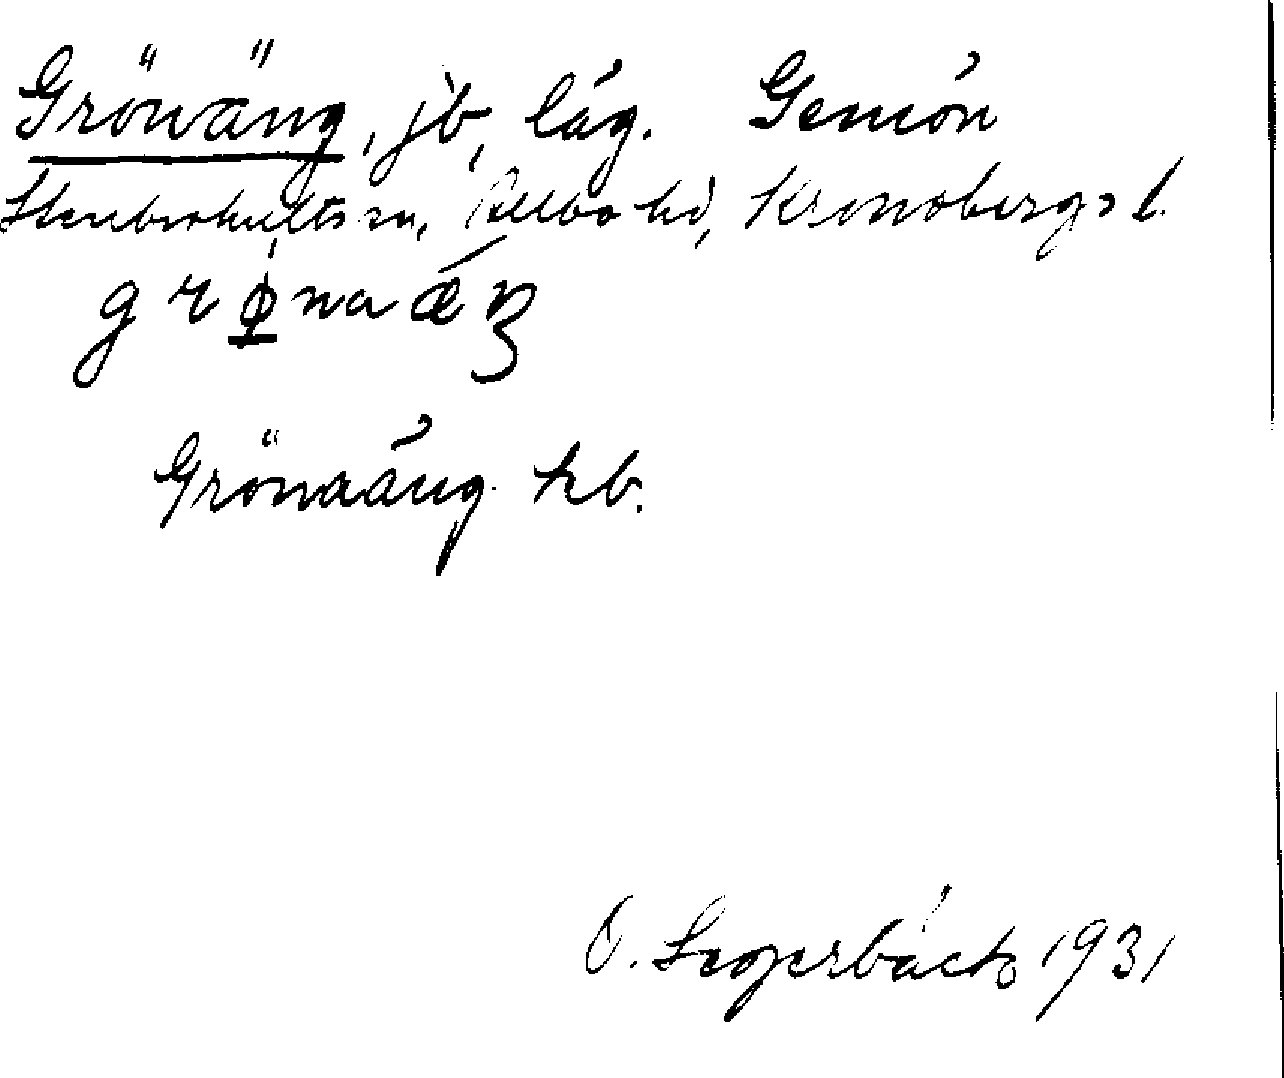 Grönäng, jb, läg. Gemön
Stenbrohults sn, Allbo hd, Kronobergs l.
grø̱naǽŋ
Grönaäng hb.
O. Segerbäck 1931